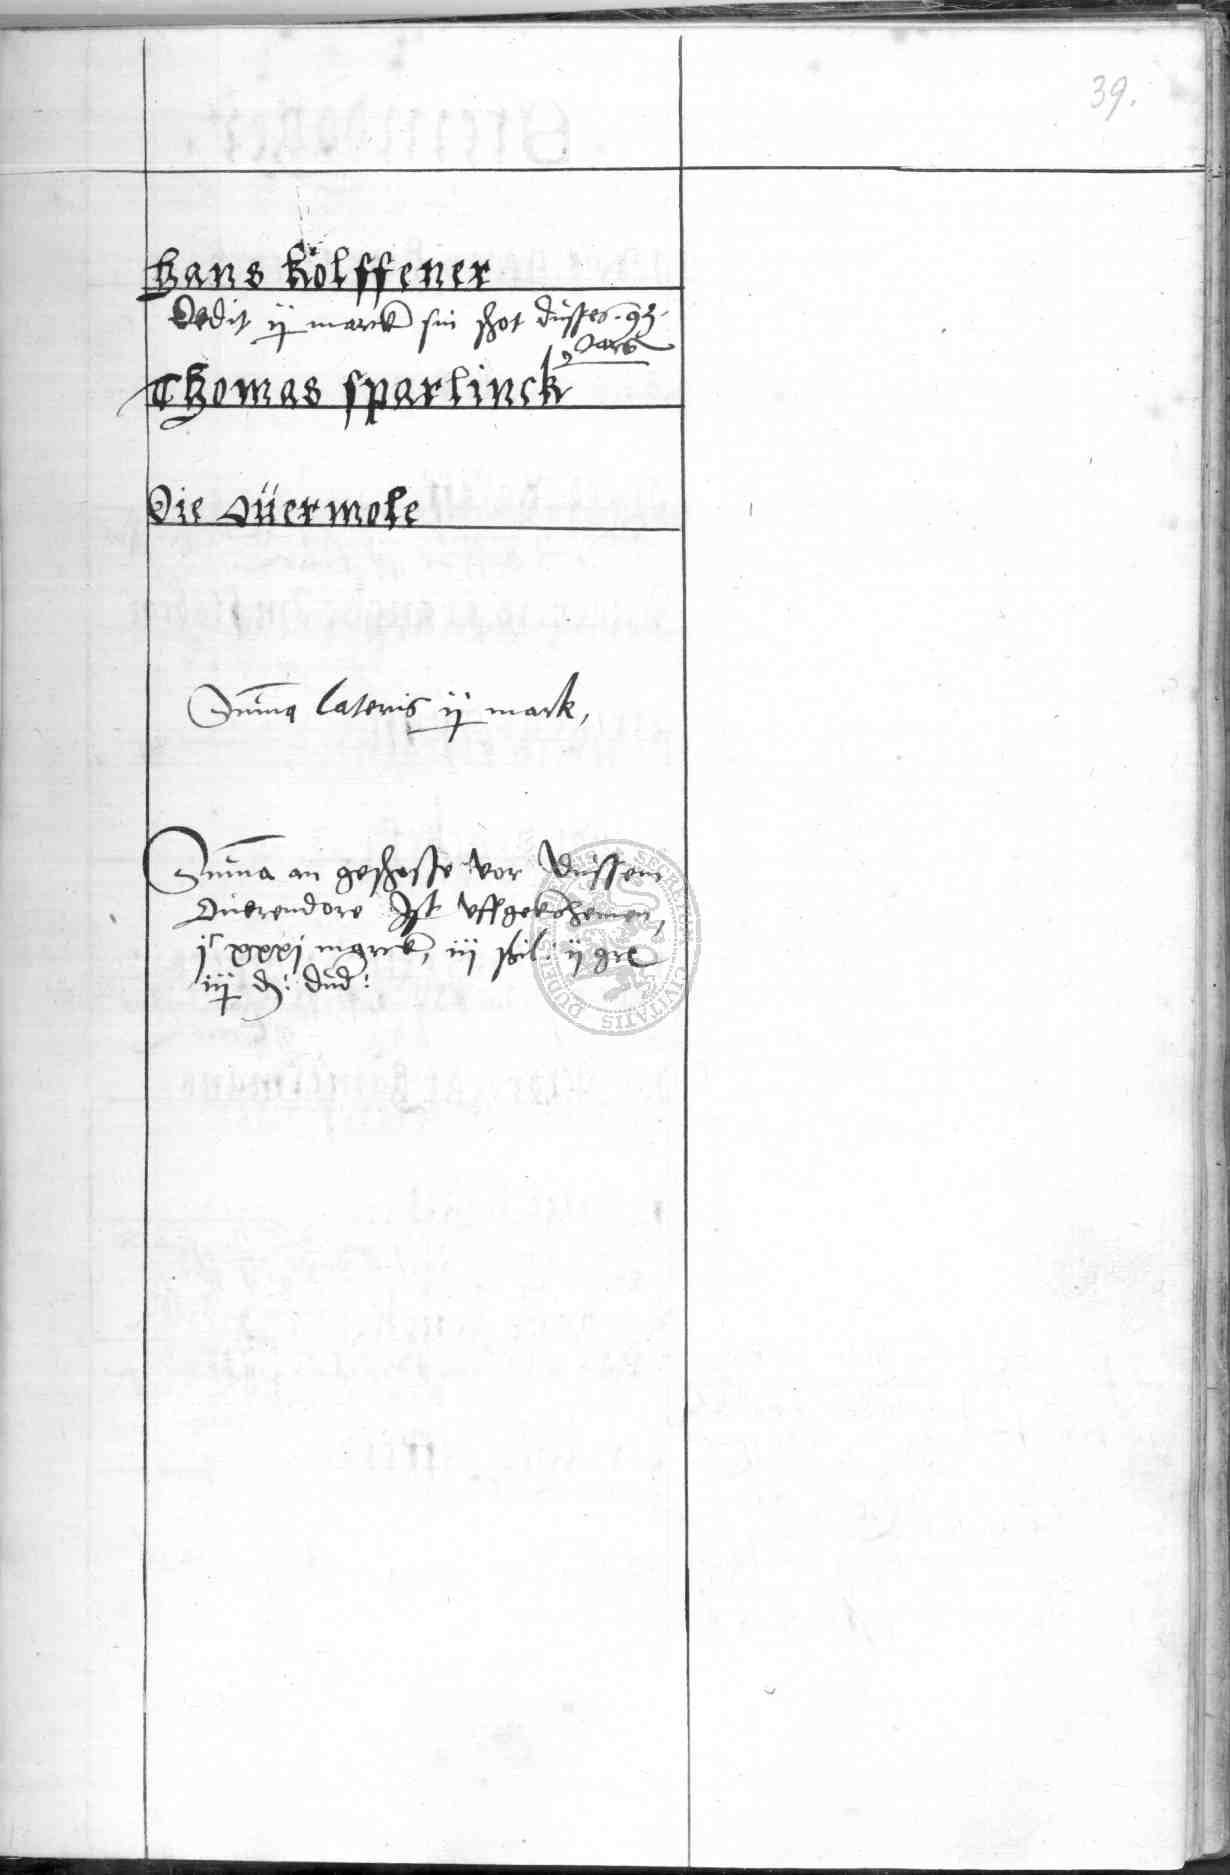 39.
Hans kölffener
Dedit ij marck sin schot dusses 93
Jars
Thomas sparlinck
Die Auermole
Summa lateris ij mark,
Summa an geschosse vor dussem
Auerendore Ist vffgekohemen,
jc xxxj marck, iij schil: ij gre
iiij d: dud:
SECRETUM CIVITATIS DUDER